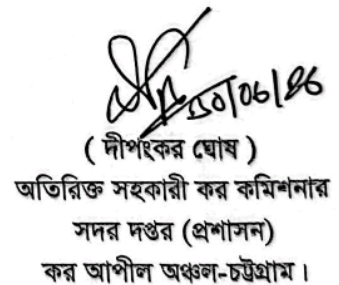 ৩০/০৬/২৬
( দীপংকর ঘোষ )
অতিরিক্ত সহকারী কর কমিশনার
সদর দপ্তর (প্রশাসন)
কর আপীল অঞ্চল-চট্টগ্রাম।